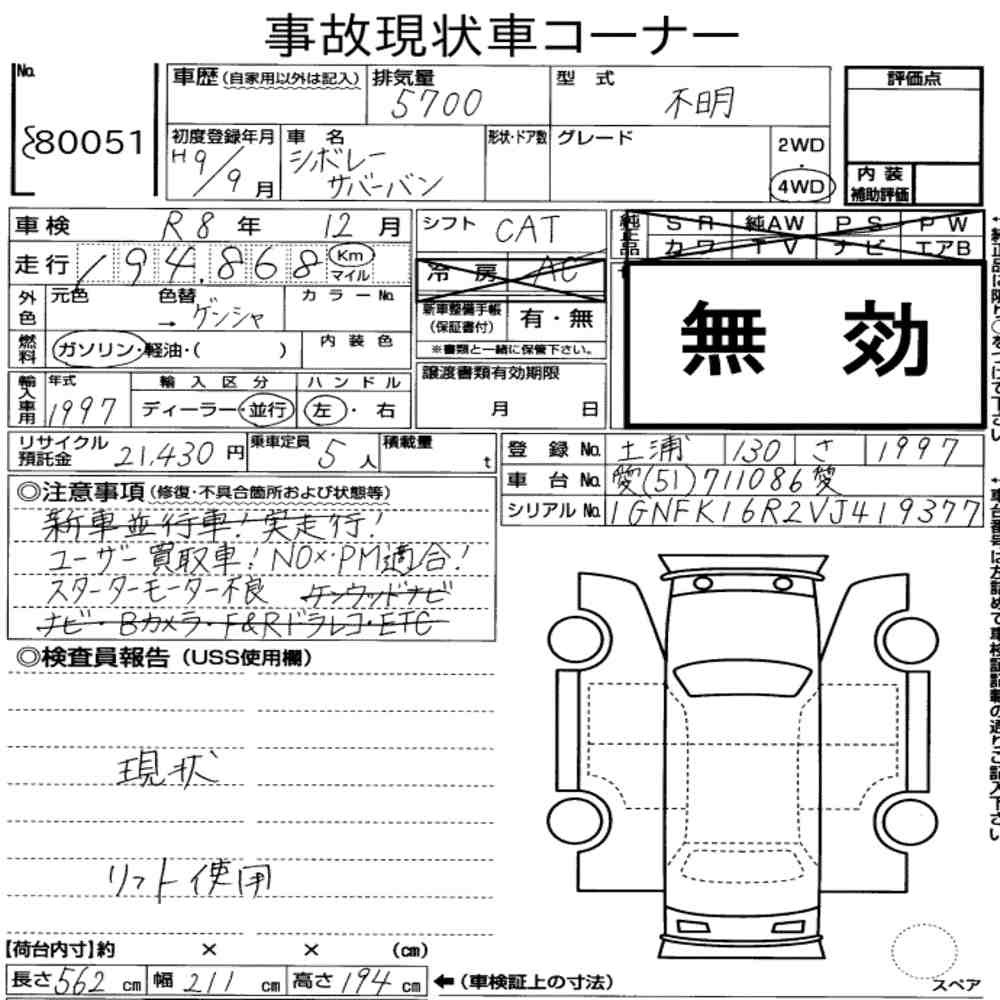 事故現状車コーナー
No. 80051
車歴(自家用以外は記入) 排気量 5700 型式 不明 評価点
初度登録年月 H9/9月 車名 シボレー サバーバン 形状・ドア数 グレード 2WD・4WD
内装補助評価
車検 R8年 12月 シフト CAT 純正品 SR 純AW PS PW
カワ TV ナビ エアB
走行 194,868 Km マイル 冷房 AC
外色 元色 色替 → ゲンシャ カラーNo. 新車整備手帳(保証書付) 有・無
無効
燃料 ガソリン・軽油・( ) 内装色 ※書類と一緒に保管下さい。
輸入車用 年式 1997 輸入区分 ディーラー・並行 ハンドル 左・右 譲渡書類有効期限 月 日
リサイクル預託金 21,430円 乗車定員 5人 積載量 t
登録No. 土浦 130 さ 1997
車台No. 愛(51)711086愛
シリアルNo. 1GNFK16R2VJ419377
◎注意事項(修復・不具合箇所および状態等)
新車並行車!実走行!
ユーザー買取車!NOx・PM適合!
スターターモーター不良 ケンウッドナビ
ナビ・Bカメラ・F&Rドラレコ・ETC
◎検査員報告(USS使用欄)
現状
リフト使用
【荷台内寸】約 × × (cm)
長さ562cm 幅211cm 高さ194cm ←(車検証上の寸法)
スペア